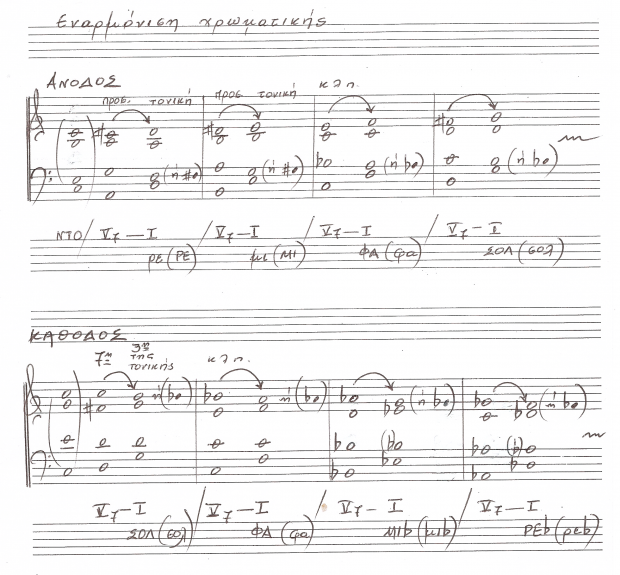 Εναρμόνιση χρωματικής
ΑΝΟΔΟΣ
προσ. τονική προσ. τονική κλπ.
(ή #o) (ή #o) (ή bo) (ή bo)
ΝΤΟ / V7 — I / V7 — I / V7 — I / V7 — I
ρε (ΡΕ) μι (ΜΙ) ΦΑ (φα) ΣΟΛ (σολ)
ΚΑΘΟΔΟΣ
7η 3η της τονικής κλπ.
ή (bo) ή (bo) (ή bo) (ή bo)
V7 — I / V7 — I / V7 — I / V7 — I
ΣΟΛ (σολ) ΦΑ (φα) ΜΙb (μιb) ΡΕb (ρεb)